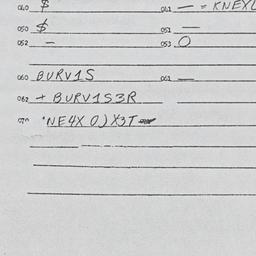 040 $ 041 — = KNEXL
050 $ 051 —
052 — 053 O
060 BURV1S 061 —
062 + BURV1S3R
070 "NE4X O) X3T